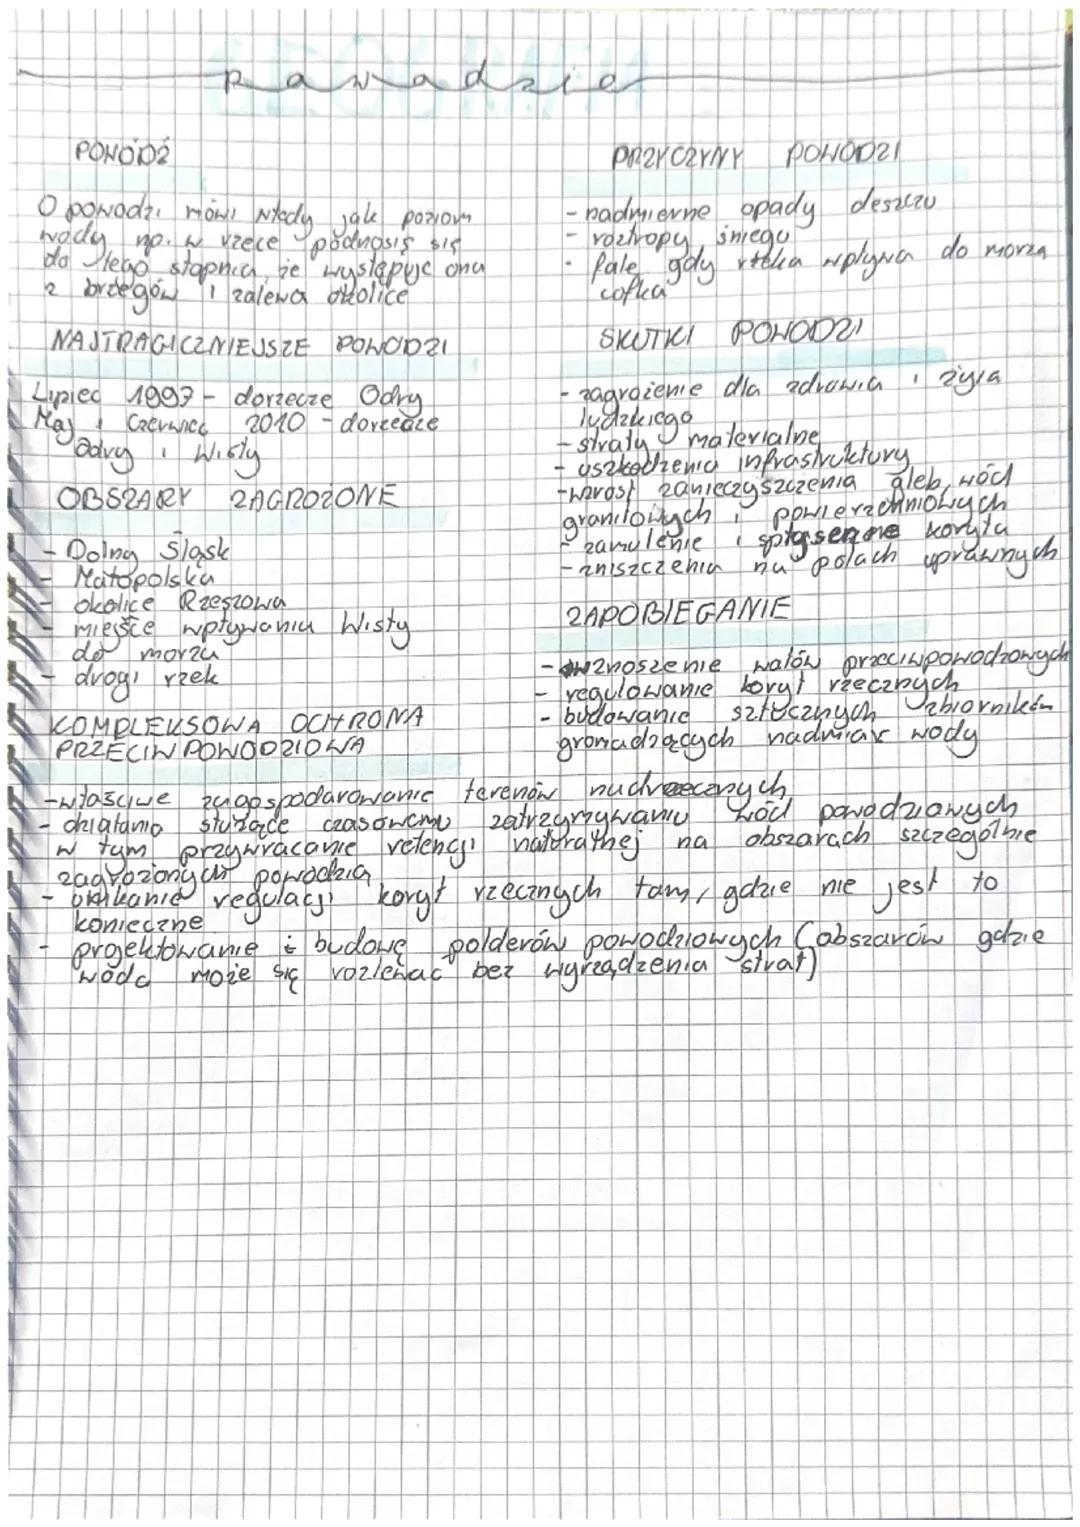 powodzie
POWÓDŹ
O powodzi mówi wtedy jak poziom
wody np. w rzece podnosi się
do tego stopnia, że występuje ona
z brzegów i zalewa okolice
NAJTRAGICZNIEJSZE POWODZI
Lipiec 1997 - dorzecze Odry
Maj i Czerwiec 2010 - dorzecze
Odry i Wisły
OBSZARY ZAGROŻONE
- Dolny Śląsk
- Małopolska
- okolice Rzeszowa
- miejsce wpływania Wisły
do morza
- drogi rzek
KOMPLEKSOWA OCHRONA
PRZECIWPOWODZIOWA
PRZYCZYNY POWODZI
- nadmierne opady deszczu
- roztropy śniegu
- fale, gdy rzeka wpływa do morza
cofka
SKUTKI POWODZI
- zagrożenie dla zdrowia i życia
ludzkiego
- straty materialne
- uszkodzenia infrastruktury
- wzrost zanieczyszczenia gleb, wód
gruntowych i powierzchniowych
- zamulenie i spłyszenie koryta
- zniszczenia na polach uprawnych
ZAPOBIEGANIE
- wznoszenie wałów przeciwpowodziowych
- regulowanie koryt rzecznych
- budowanie sztucznych zbiorników
gromadzących nadmiar wody
- właściwe zagospodarowanie terenów nadrzecznych
- działania służące czasowemu zatrzymywaniu wód powodziowych
w tym przywracanie retencji naturalnej na obszarach szczególnie
zagrożonych powodzią
- unikanie regulacji koryt rzecznych tam, gdzie nie jest to
konieczne
- projektowanie i budowę polderów powodziowych (obszarów gdzie
woda może się rozlewać bez wyrządzenia strat)